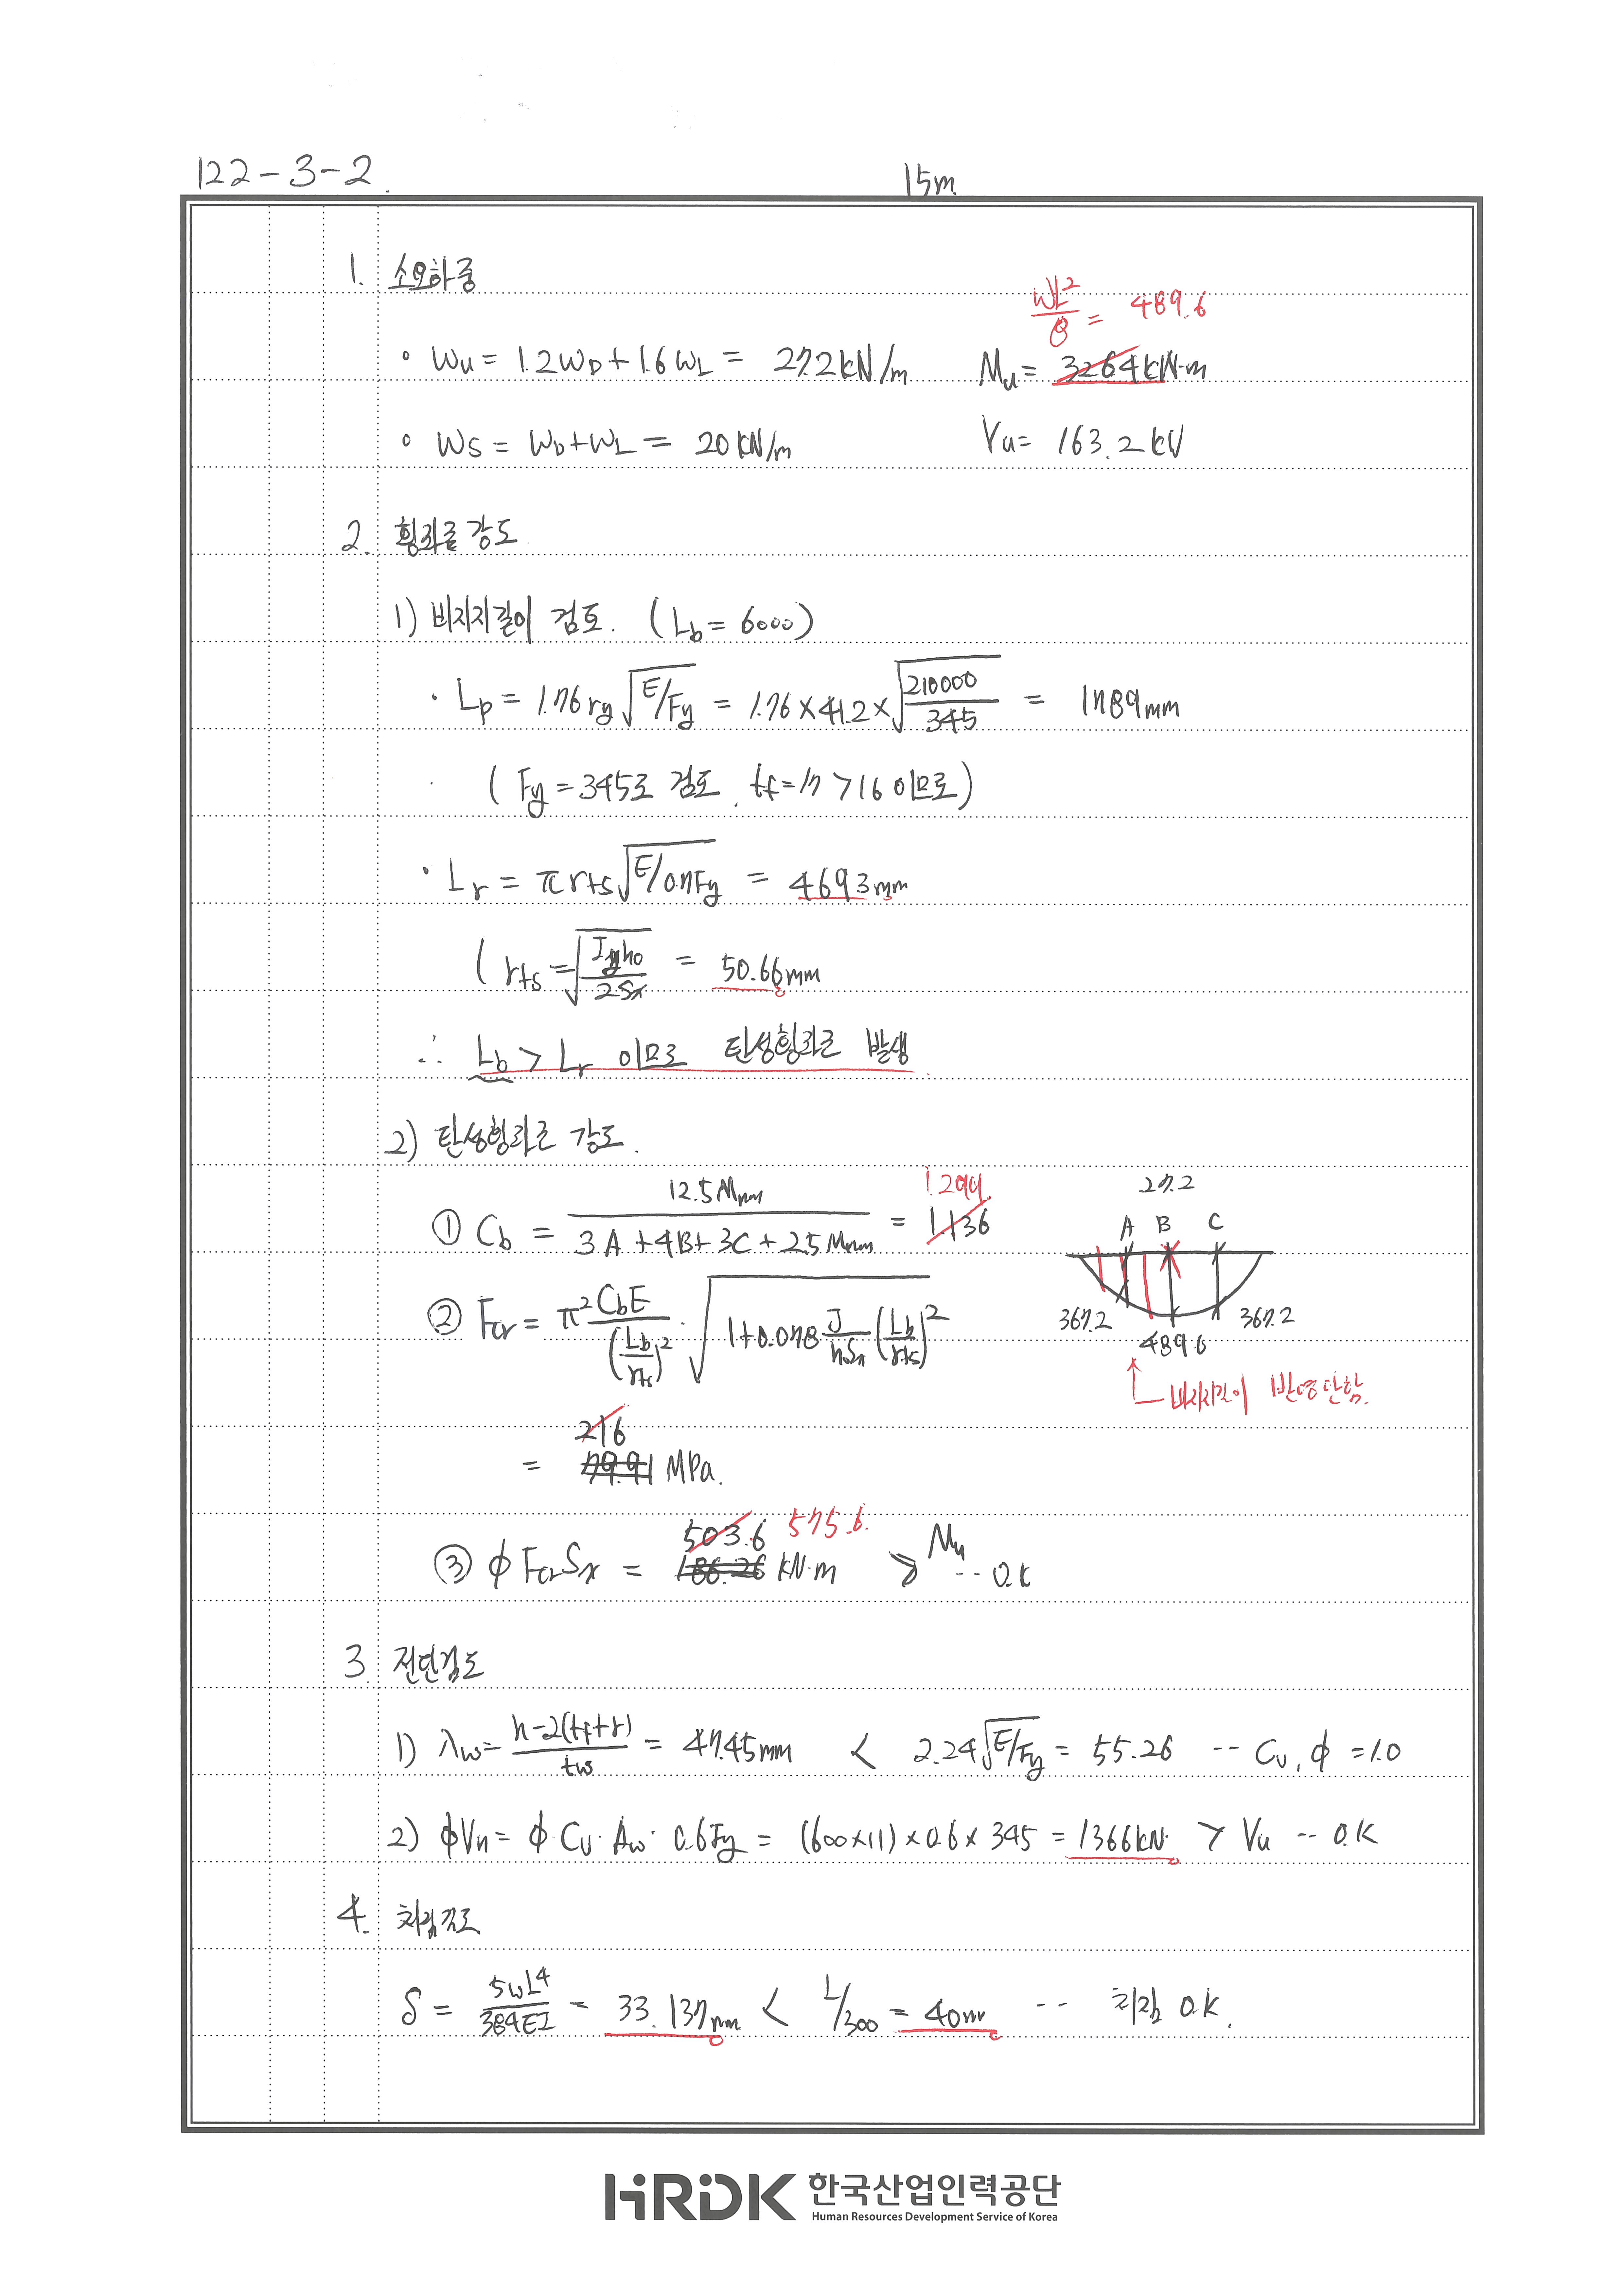 122-3-2.
15m
1. 소요하중
wL²/8 = 489.6
∘ Wu = 1.2WD + 1.6WL = 27.2kN/m Mu = 3264kN·m
∘ WS = WD + WL = 20kN/m Vu = 163.2kN
2. 횡좌굴강도
1) 비지지길이 검토. (Lb = 6000)
· Lp = 1.76ry√(E/Fy) = 1.76×41.2×√(210000/345) = 1789mm
(Fy = 345로 검토. tf=17 > 16 이므로)
· Lr = πrts√(E/0.7Fy) = 4693mm
(rts = √(Iyho/2Sx) = 50.66mm
∴ Lb > Lr 이므로 탄성횡좌굴 발생
2) 탄성횡좌굴 강도.
① Cb = 12.5Mmm / (3A+4B+3C+2.5Mmm) = 1.136 1.299
27.2
A B C
367.2 489.6 367.2
② Fcr = π²CbE/(Lb/rts)² · √(1+0.078 J/hoSx (Lb/rts)²)
비지지길이 반영안함.
216
= 79.91 MPa.
503.6 575.6.
③ ϕFcrSx = 186.26 kN·m > Mu -- O.K
3. 전단검토
1) λw = h-2(tf+r)/tw = 47.45mm < 2.24√(E/Fy) = 55.26 -- Cv, ϕ = 1.0
2) ϕVn = ϕ·Cv·Aw·0.6Fy = (600×11)×0.6×345 = 1366kN. > Vu -- O.K
4. 처짐검토
δ = 5wL⁴/384EI = 33.137mm < L/300 = 40mm -- 처짐 O.K.
HRDK 한국산업인력공단
Human Resources Development Service of Korea